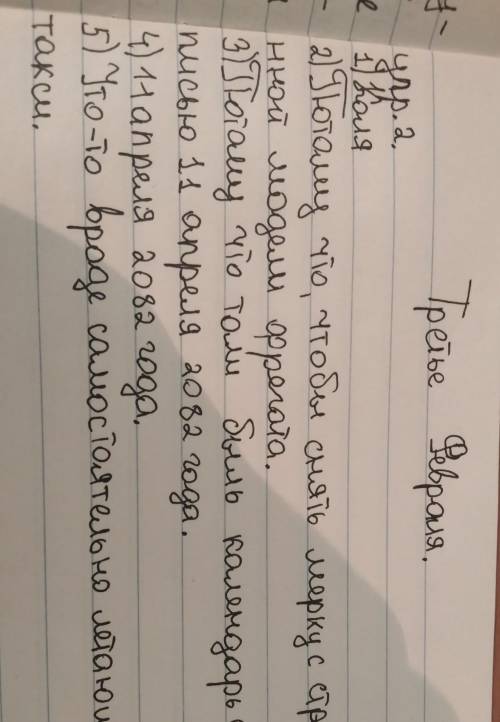 Третье Февраля.
упр. 2.
1) Коля
2) Потому что, чтобы снять мерку с стр
нной модели фрегата.
3) Потому что там был календарь с
писью 11 апреля 2082 года.
4) 11 апреля 2082 года.
5) Что-то вроде самостоятельно летающ
такси.